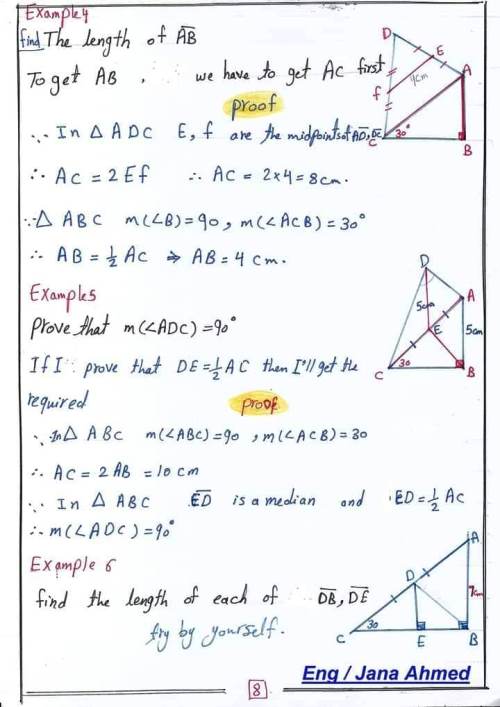 Example 4
find The length of AB
To get AB, ∵ we have to get AC first
proof
∵ In △ ADC E, f are the midpoints of AD, DC
∴ AC = 2 Ef ∴ AC = 2×4 = 8 cm.
∵ △ ABC m(∠B) = 90, m(∠ACB) = 30°
∴ AB = ½ AC ⇒ AB = 4 cm.
D
E
4cm
A
f
C
30°
B
Example 5
Prove that m(∠ADC) = 90°
If I prove that DE = ½ AC then I'll get the
required
proof
∵ In △ ABC m(∠ABC) = 90, m(∠ACB) = 30
∴ AC = 2 AB = 10 cm
∵ In △ ABC ED is a median and ED = ½ AC
∴ m(∠ADC) = 90°
D
A
5cm
E
5cm
C
30
B
Example 6
find the length of each of DB, DE
try by yourself.
A
D
7cm
C
30
E
B
Eng / Jana Ahmed
8